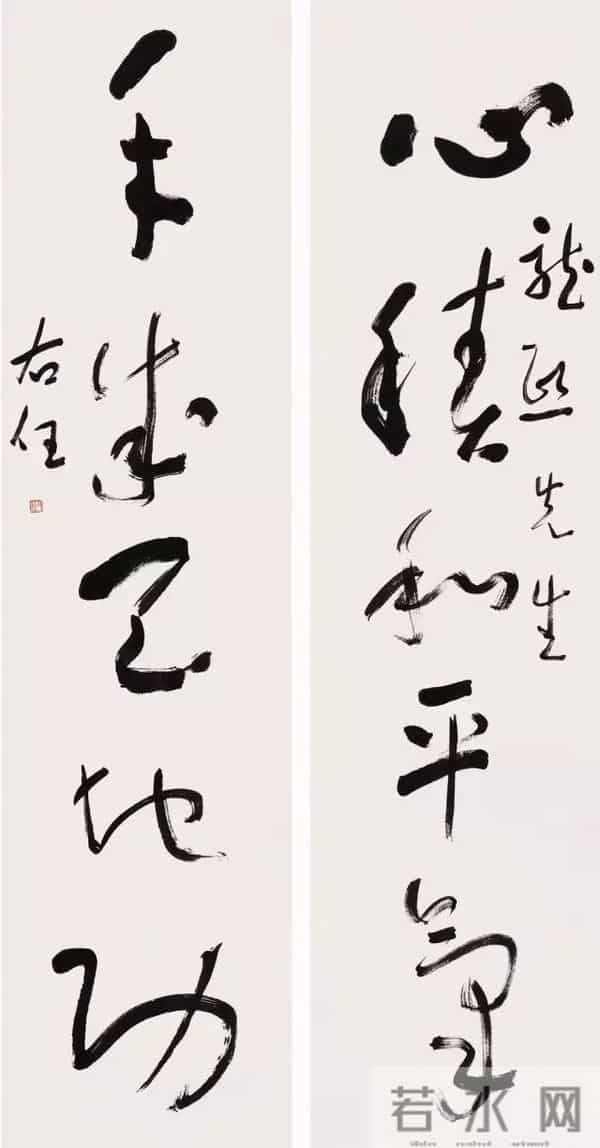 心積和平氣
龍熙先生
手成天地功
右任
若水网